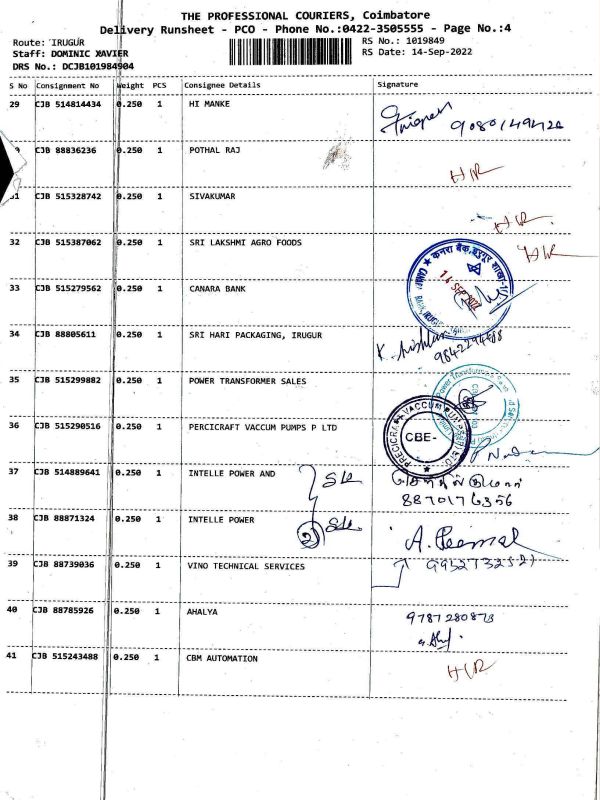 THE PROFESSIONAL COURIERS, Coimbatore
Delivery Runsheet - PCO - Phone No.:0422-3505555 - Page No.:4
Route: IRUGUR
RS No.: 1019849
Staff: DOMINIC XAVIER
RS Date: 14-Sep-2022
DRS No.: DCJB101984904
S No Consignment No Weight PCS Consignee Details Signature
29 CJB 514814434 0.250 1 HI MANKE
CJB 88836236 0.250 1 POTHAL RAJ H/R
31 CJB 515328742 0.250 1 SIVAKUMAR H/R
32 CJB 515387062 0.250 1 SRI LAKSHMI AGRO FOODS H/R
33 CJB 515279562 0.250 1 CANARA BANK
14 SEP 2022
34 CJB 88805611 0.250 1 SRI HARI PACKAGING, IRUGUR
9842294688
35 CJB 515299882 0.250 1 POWER TRANSFORMER SALES
36 CJB 515290516 0.250 1 PERCICRAFT VACCUM PUMPS P LTD
PRECICRAFT VACCUM PUMPS (P) LTD
CBE-
37 CJB 514889641 0.250 1 INTELLE POWER AND
செந்தில்குமார்
8870176356
38 CJB 88871324 0.250 1 INTELLE POWER
2
A. Peermal
39 CJB 88739036 0.250 1 VINO TECHNICAL SERVICES
40 CJB 88785926 0.250 1 AHALYA
41 CJB 515243488 0.250 1 CBM AUTOMATION H/R